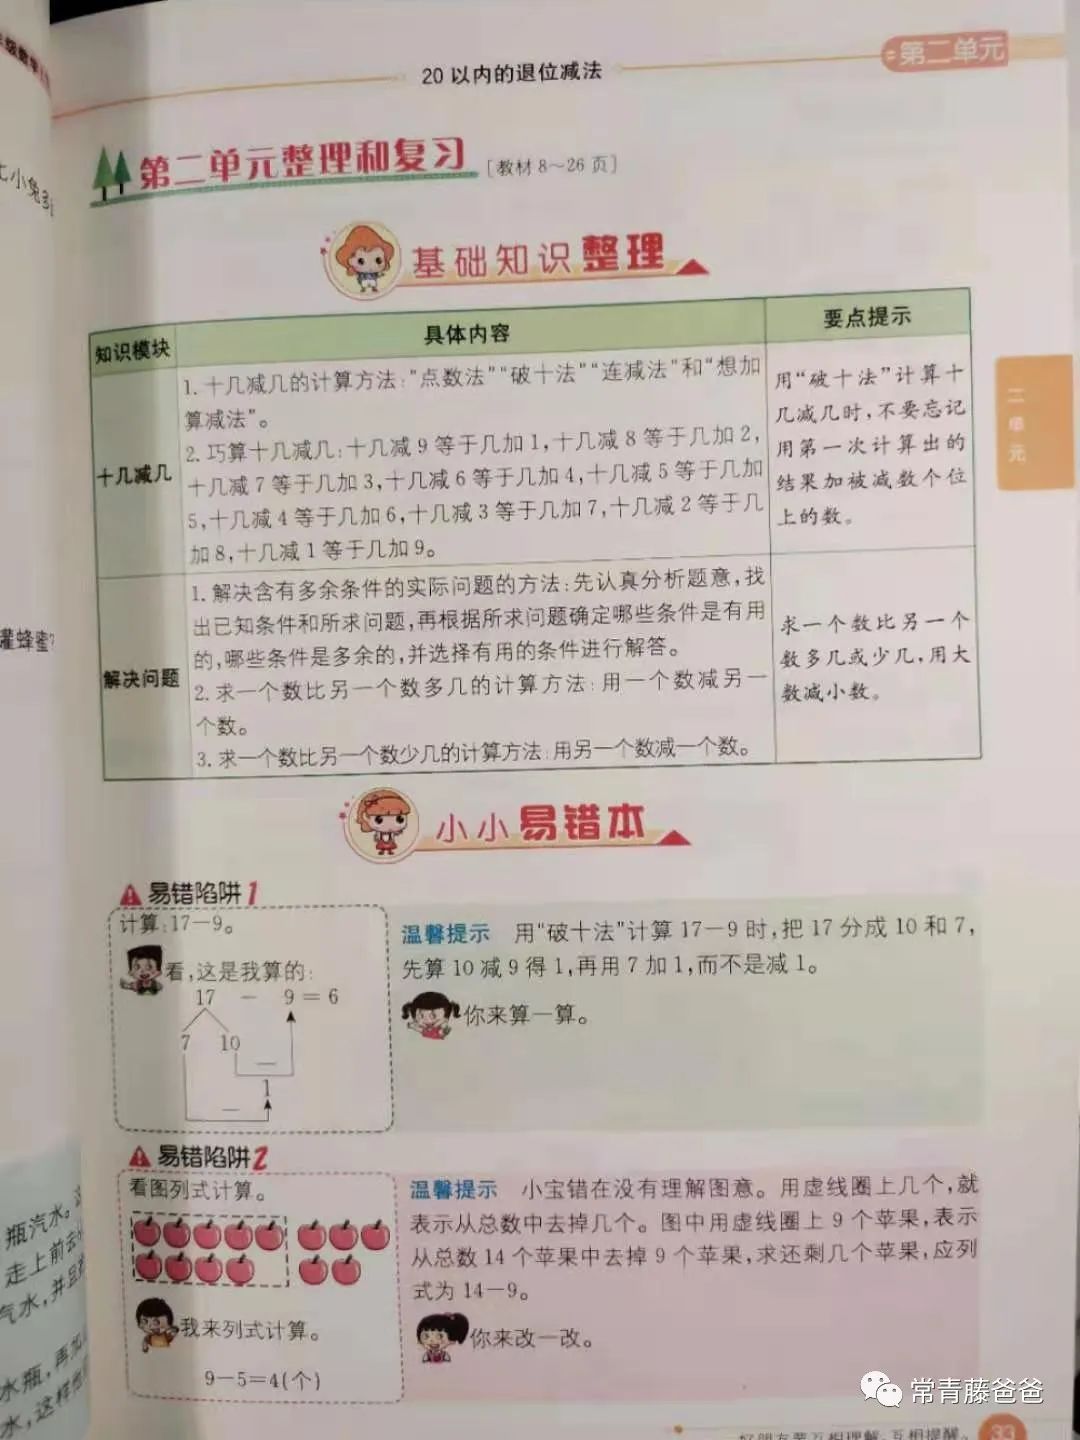 第二单元
20以内的退位减法
第二单元整理和复习 [教材8～26页]
基础知识整理
知识模块
具体内容
要点提示
十几减几
1. 十几减几的计算方法:“点数法”“破十法”“连减法”和“想加
算减法”。
2. 巧算十几减几:十几减9等于几加1,十几减8等于几加2,
十几减7等于几加3,十几减6等于几加4,十几减5等于几加
5,十几减4等于几加6,十几减3等于几加7,十几减2等于几
加8,十几减1等于几加9。
用“破十法”计算十
几减几时,不要忘记
用第一次计算出的
结果加被减数个位
上的数。
解决问题
1. 解决含有多余条件的实际问题的方法:先认真分析题意,找
出已知条件和所求问题,再根据所求问题确定哪些条件是有用
的,哪些条件是多余的,并选择有用的条件进行解答。
2. 求一个数比另一个数多几的计算方法:用一个数减另一
个数。
3. 求一个数比另一个数少几的计算方法:用另一个数减一个数。
求一个数比另一个
数多几或少几,用大
数减小数。
二单元
小小易错本
易错陷阱1
计算:17－9。
看,这是我算的:
17 － 9＝6
7 10
－
1
－
温馨提示 用“破十法”计算17－9时,把17分成10和7,
先算10减9得1,再用7加1,而不是减1。
你来算一算。
易错陷阱2
看图列式计算。
我来列式计算。
9－5＝4(个)
温馨提示 小宝错在没有理解图意。用虚线圈上几个,就
表示从总数中去掉几个。图中用虚线圈上9个苹果,表示
从总数14个苹果中去掉9个苹果,求还剩几个苹果,应列
式为14－9。
你来改一改。
小兔多
罐蜂蜜?
瓶汽水。
走上前去
气水,并且
水瓶,再加
水,这样他
常青藤爸爸
好朋友要互相理解,互相提醒。
33